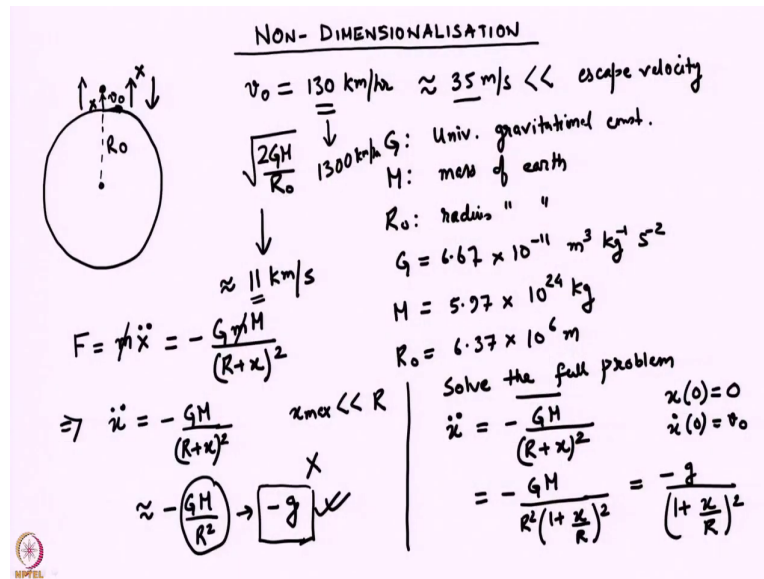 NON-DIMENSIONALISATION
v₀ = 130 km/hr ≈ 35 m/s << escape velocity
x v₀ x
R₀
√(2GM/R₀) 1300 km/hr
≈ 11 km/s
G: Univ. gravitational const.
M: mass of earth
R₀: radius " "
G = 6.67 × 10⁻¹¹ m³ kg⁻¹ s⁻²
M = 5.97 × 10²⁴ kg
R₀ = 6.37 × 10⁶ m
F = mẍ = - GmM/(R+x)²
⇒ ẍ = - GM/(R+x)² xmax << R
≈ - GM/R² → -g X ✓
Solve the full problem
ẍ = - GM/(R+x)² x(0) = 0
ẋ(0) = v₀
= - GM/R²(1 + x/R)² = -g/(1 + x/R)²
NPTEL